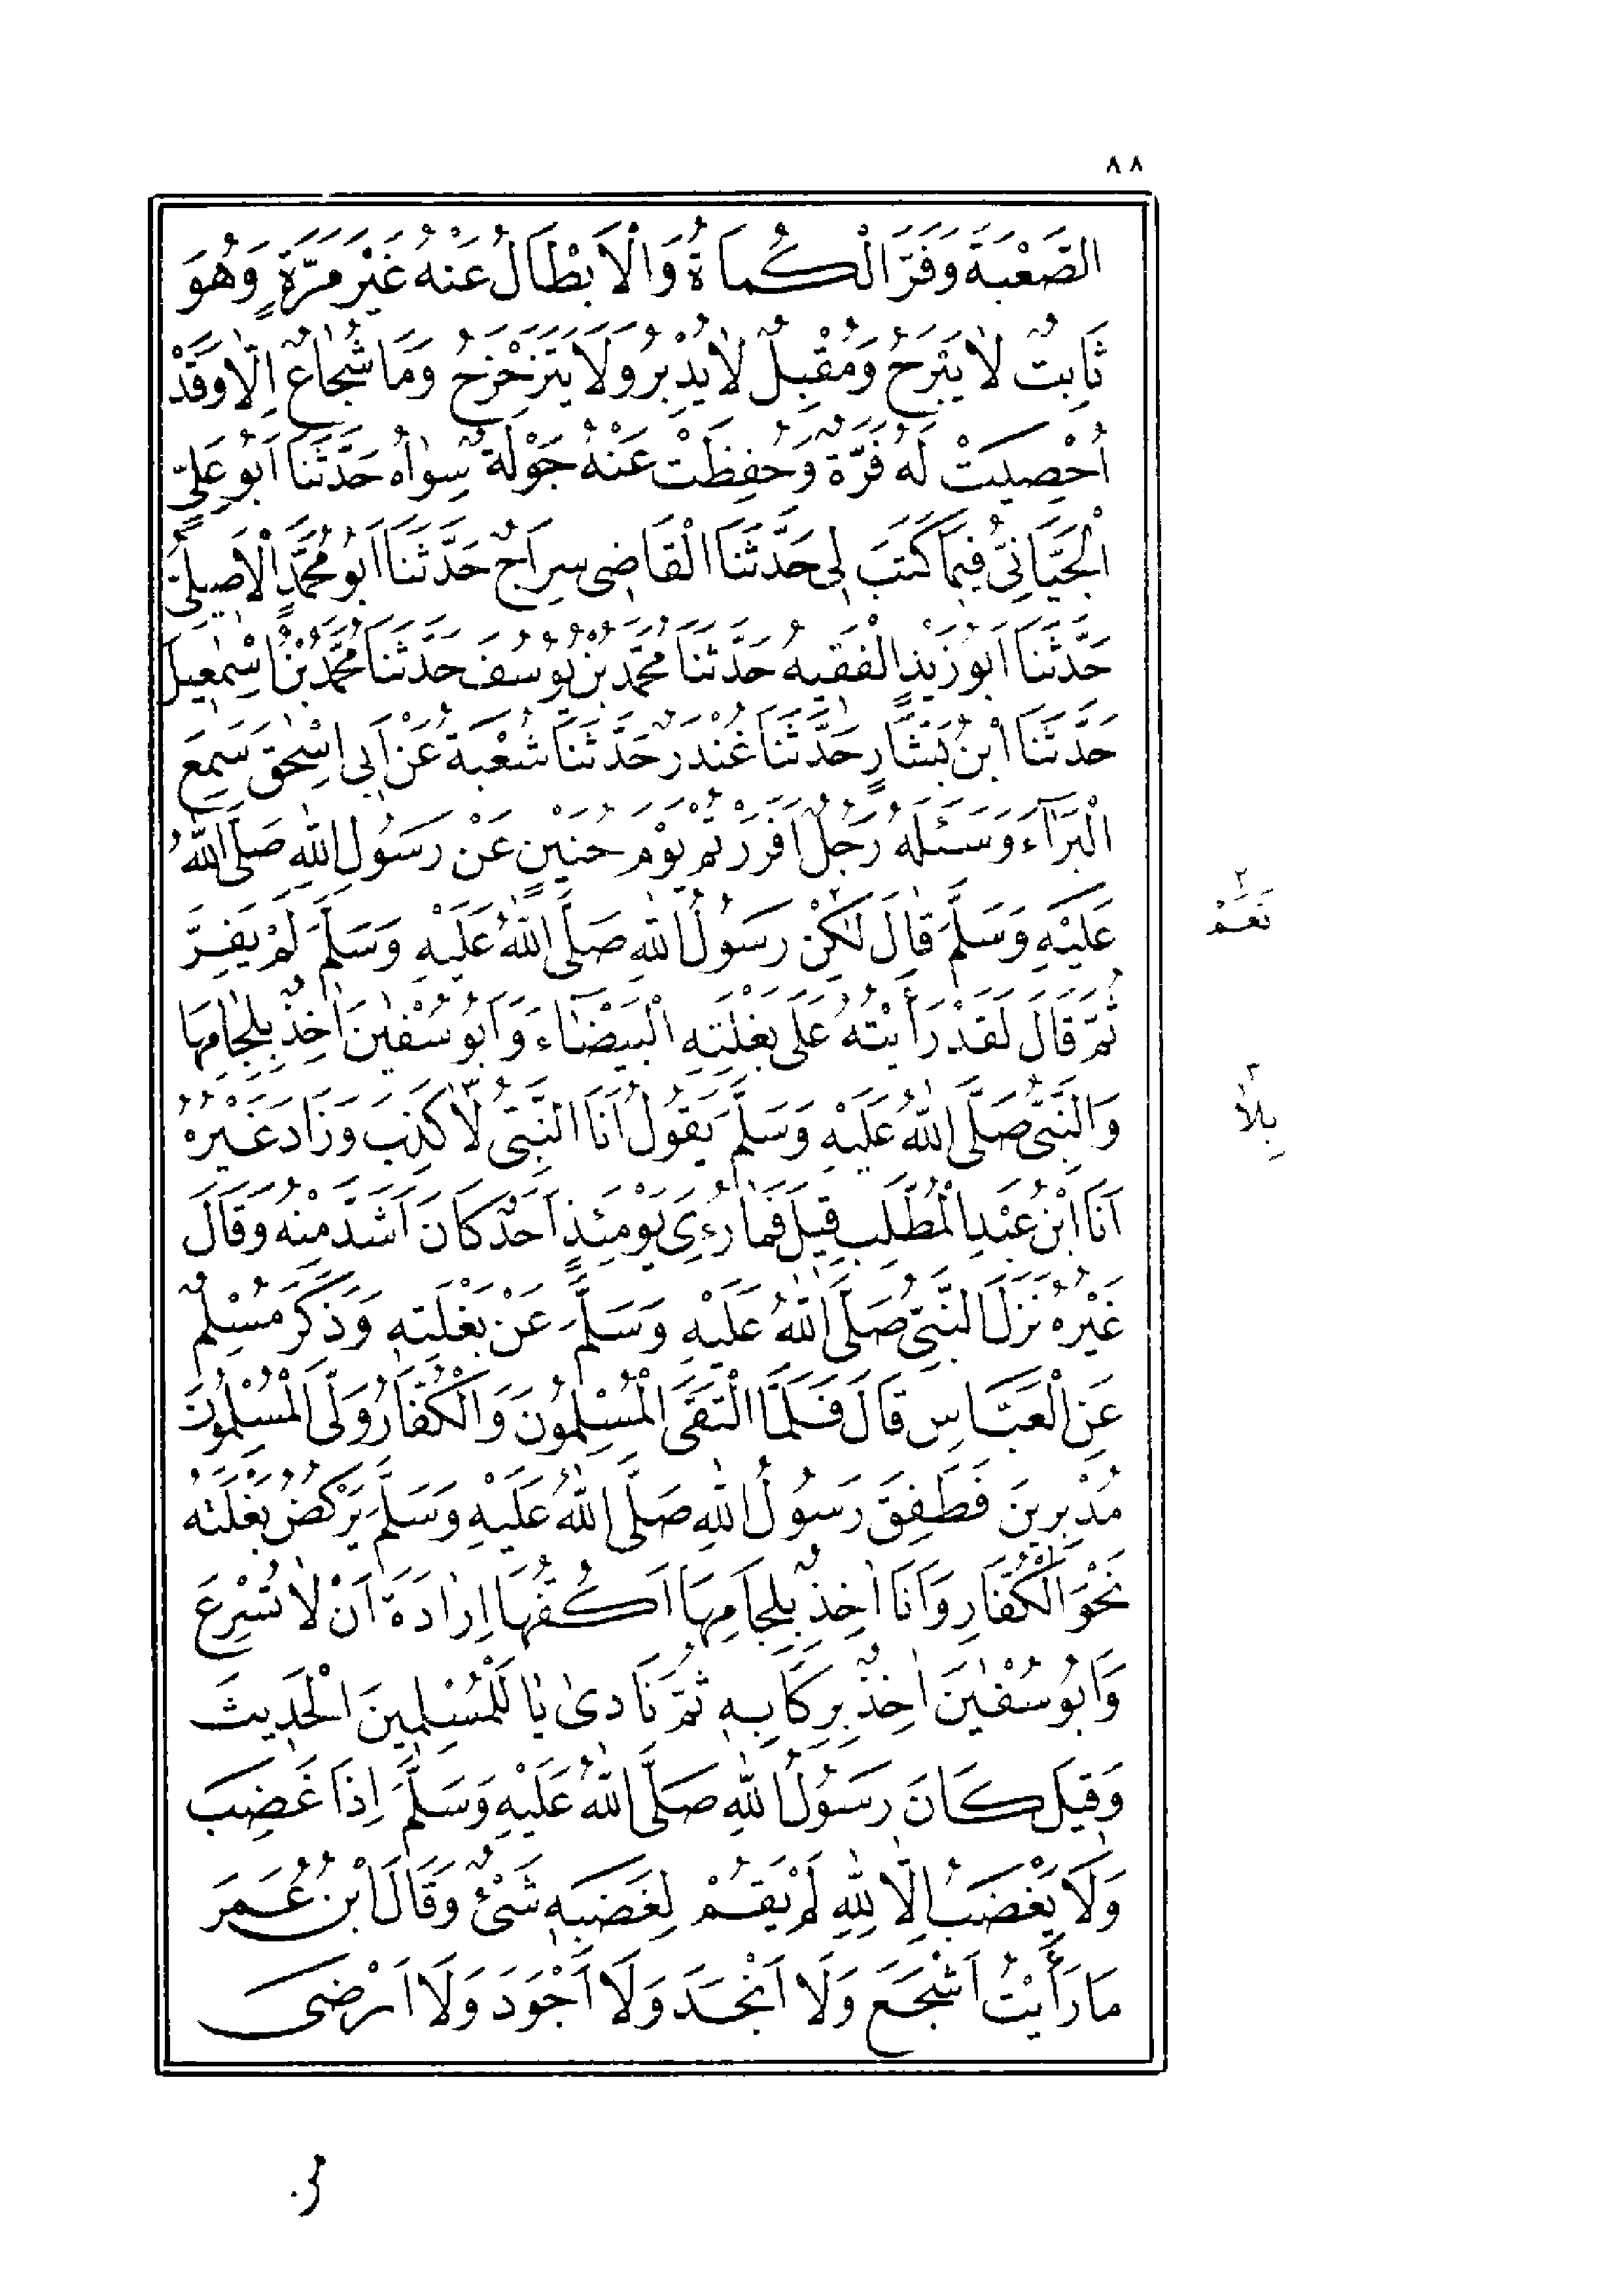 ٨٨
الصَّعْبَةَ وَفَرَّ الْكُمَاةُ وَالْاَبْطَالُ عَنْهُ غَيْرَ مَرَّةٍ وَهُوَ
ثَابِتٌ لَا يَبْرَحُ وَمُقْبِلٌ لَا يُدْبِرُ وَلَا يَتَزَحْزَحُ وَمَا شُجَاعٌ اِلَّا وَقَدْ
اُحْصِيَتْ لَهُ فَرَّةٌ وَحُفِظَتْ عَنْهُ جَوْلَةٌ سِوَاهُ حَدَّثَنَا اَبُو عَلِيٍّ
الْجَيَّانِيُّ فِيمَا كَتَبَ لِى حَدَّثَنَا الْقَاضِى سِرَاجٌ حَدَّثَنَا اَبُو مُحَمَّدٍ الْاَصِيلِيُّ
حَدَّثَنَا اَبُو زَيْدٍ الْفَقِيهُ حَدَّثَنَا مُحَمَّدُ بْنُ يُوسُفَ حَدَّثَنَا مُحَمَّدُ بْنُ اِسْمٰعِيلَ
حَدَّثَنَا ابْنُ بَشَّارٍ حَدَّثَنَا غُنْدَرٌ حَدَّثَنَا شُعْبَةُ عَنْ اَبِى اِسْحٰقَ سَمِعَ
الْبَرَآءَ وَسَئَلَهُ رَجُلٌ اَفَرَرْتُمْ يَوْمَ حُنَيْنٍ عَنْ رَسُولِ اللّٰهِ صَلَّى اللّٰهُ
عَلَيْهِ وَسَلَّمَ قَالَ ٢ لٰكِنْ رَسُولُ اللّٰهِ صَلَّى اللّٰهُ عَلَيْهِ وَسَلَّمَ لَمْ يَفِرَّ
٢ نَعَمْ
ثُمَّ قَالَ لَقَدْ رَأَيْتُهُ عَلَى بَغْلَتِهِ الْبَيْضَآءَ وَاَبُو سُفْيٰنَ اٰخِذٌ بِلِجَامِهَا
وَالنَّبِىُّ صَلَّى اللّٰهُ عَلَيْهِ وَسَلَّمَ يَقُولُ اَنَا النَّبِىُّ لَا ٣ كَذِبَ وَزَادَ غَيْرُهُ
٣ بِلَا
اَنَا ابْنُ عَبْدِ الْمُطَّلِبِ قِيلَ فَمَا رُءِىَ يَوْمَئِذٍ اَحَدٌ كَانَ اَشَدَّ مِنْهُ وَقَالَ
غَيْرُهُ نَزَلَ النَّبِىُّ صَلَّى اللّٰهُ عَلَيْهِ وَسَلَّمَ عَنْ بَغْلَتِهِ وَذَكَرَ مُسْلِمٌ
عَنِ الْعَبَّاسِ قَالَ فَلَمَّا الْتَقَى الْمُسْلِمُونَ وَالْكُفَّارُ وَلَّى الْمُسْلِمُونَ
مُدْبِرِينَ فَطَفِقَ رَسُولُ اللّٰهِ صَلَّى اللّٰهُ عَلَيْهِ وَسَلَّمَ يَرْكُضُ بَغْلَتَهُ
نَحْوَ الْكُفَّارِ وَاَنَا اٰخِذٌ بِلِجَامِهَا اَكُفُّهَا اِرَادَةَ اَنْ لَا تُسْرِعَ
وَاَبُو سُفْيٰنَ اٰخِذٌ بِرِكَابِهِ ثُمَّ نَادىٰ يَا لَلْمُسْلِمِينَ الْحَدِيثَ
وَقِيلَ كَانَ رَسُولُ اللّٰهِ صَلَّى اللّٰهُ عَلَيْهِ وَسَلَّمَ اِذَا غَضِبَ
وَلَا يَغْضَبُ اِلَّا لِلّٰهِ لَمْ يَقُمْ لِغَضَبِهِ شَىْءٌ وَقَالَ ابْنُ عُمَرَ
مَا رَأَيْتُ اَشْجَعَ وَلَا اَنْجَدَ وَلَا اَجْوَدَ وَلَا اَرْضَى